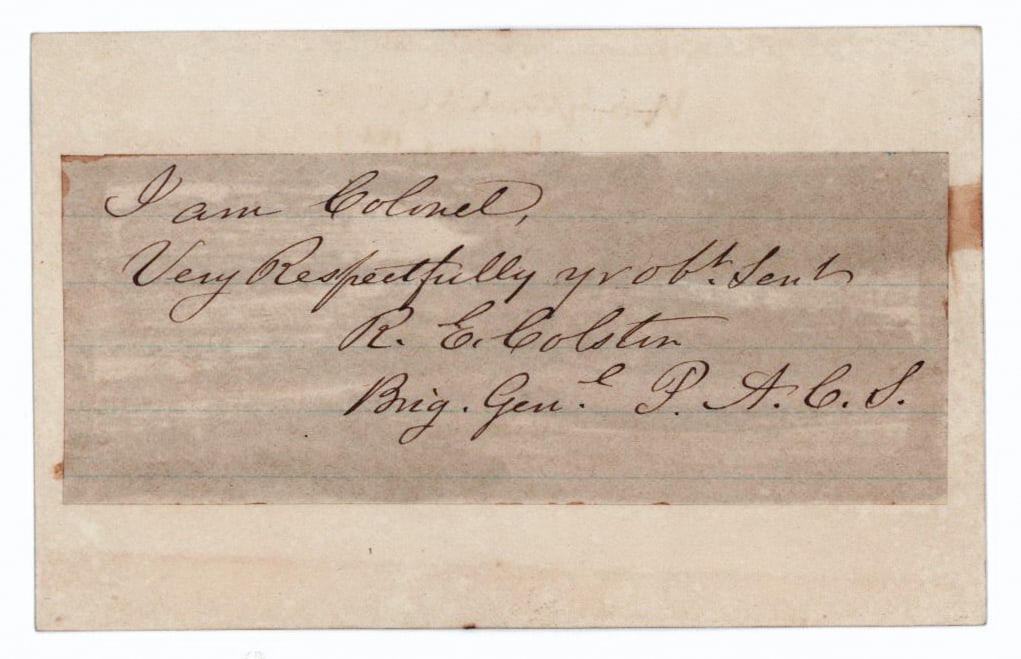 I am Colonel,
Very Respectfully yr obt. Servt
R. E. Colston
Brig. Genl. P. A. C. S.